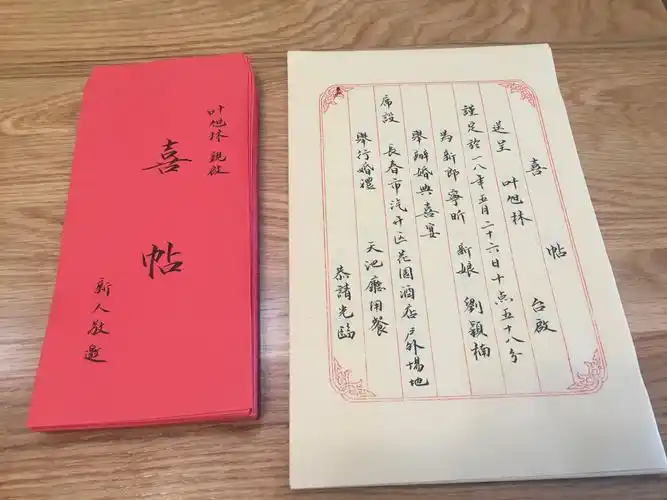 叶旭林 親啟
喜帖
新人敬邀
喜帖
送呈 叶旭林 台啟
謹定於一八年五月二十六日十点五十八分
為新郎 寧昕 新娘 劉穎楠
舉辦婚典喜宴
席設 長春市汽开区花園酒店戶外場地
舉行婚禮 天池廳用餐
恭請光臨